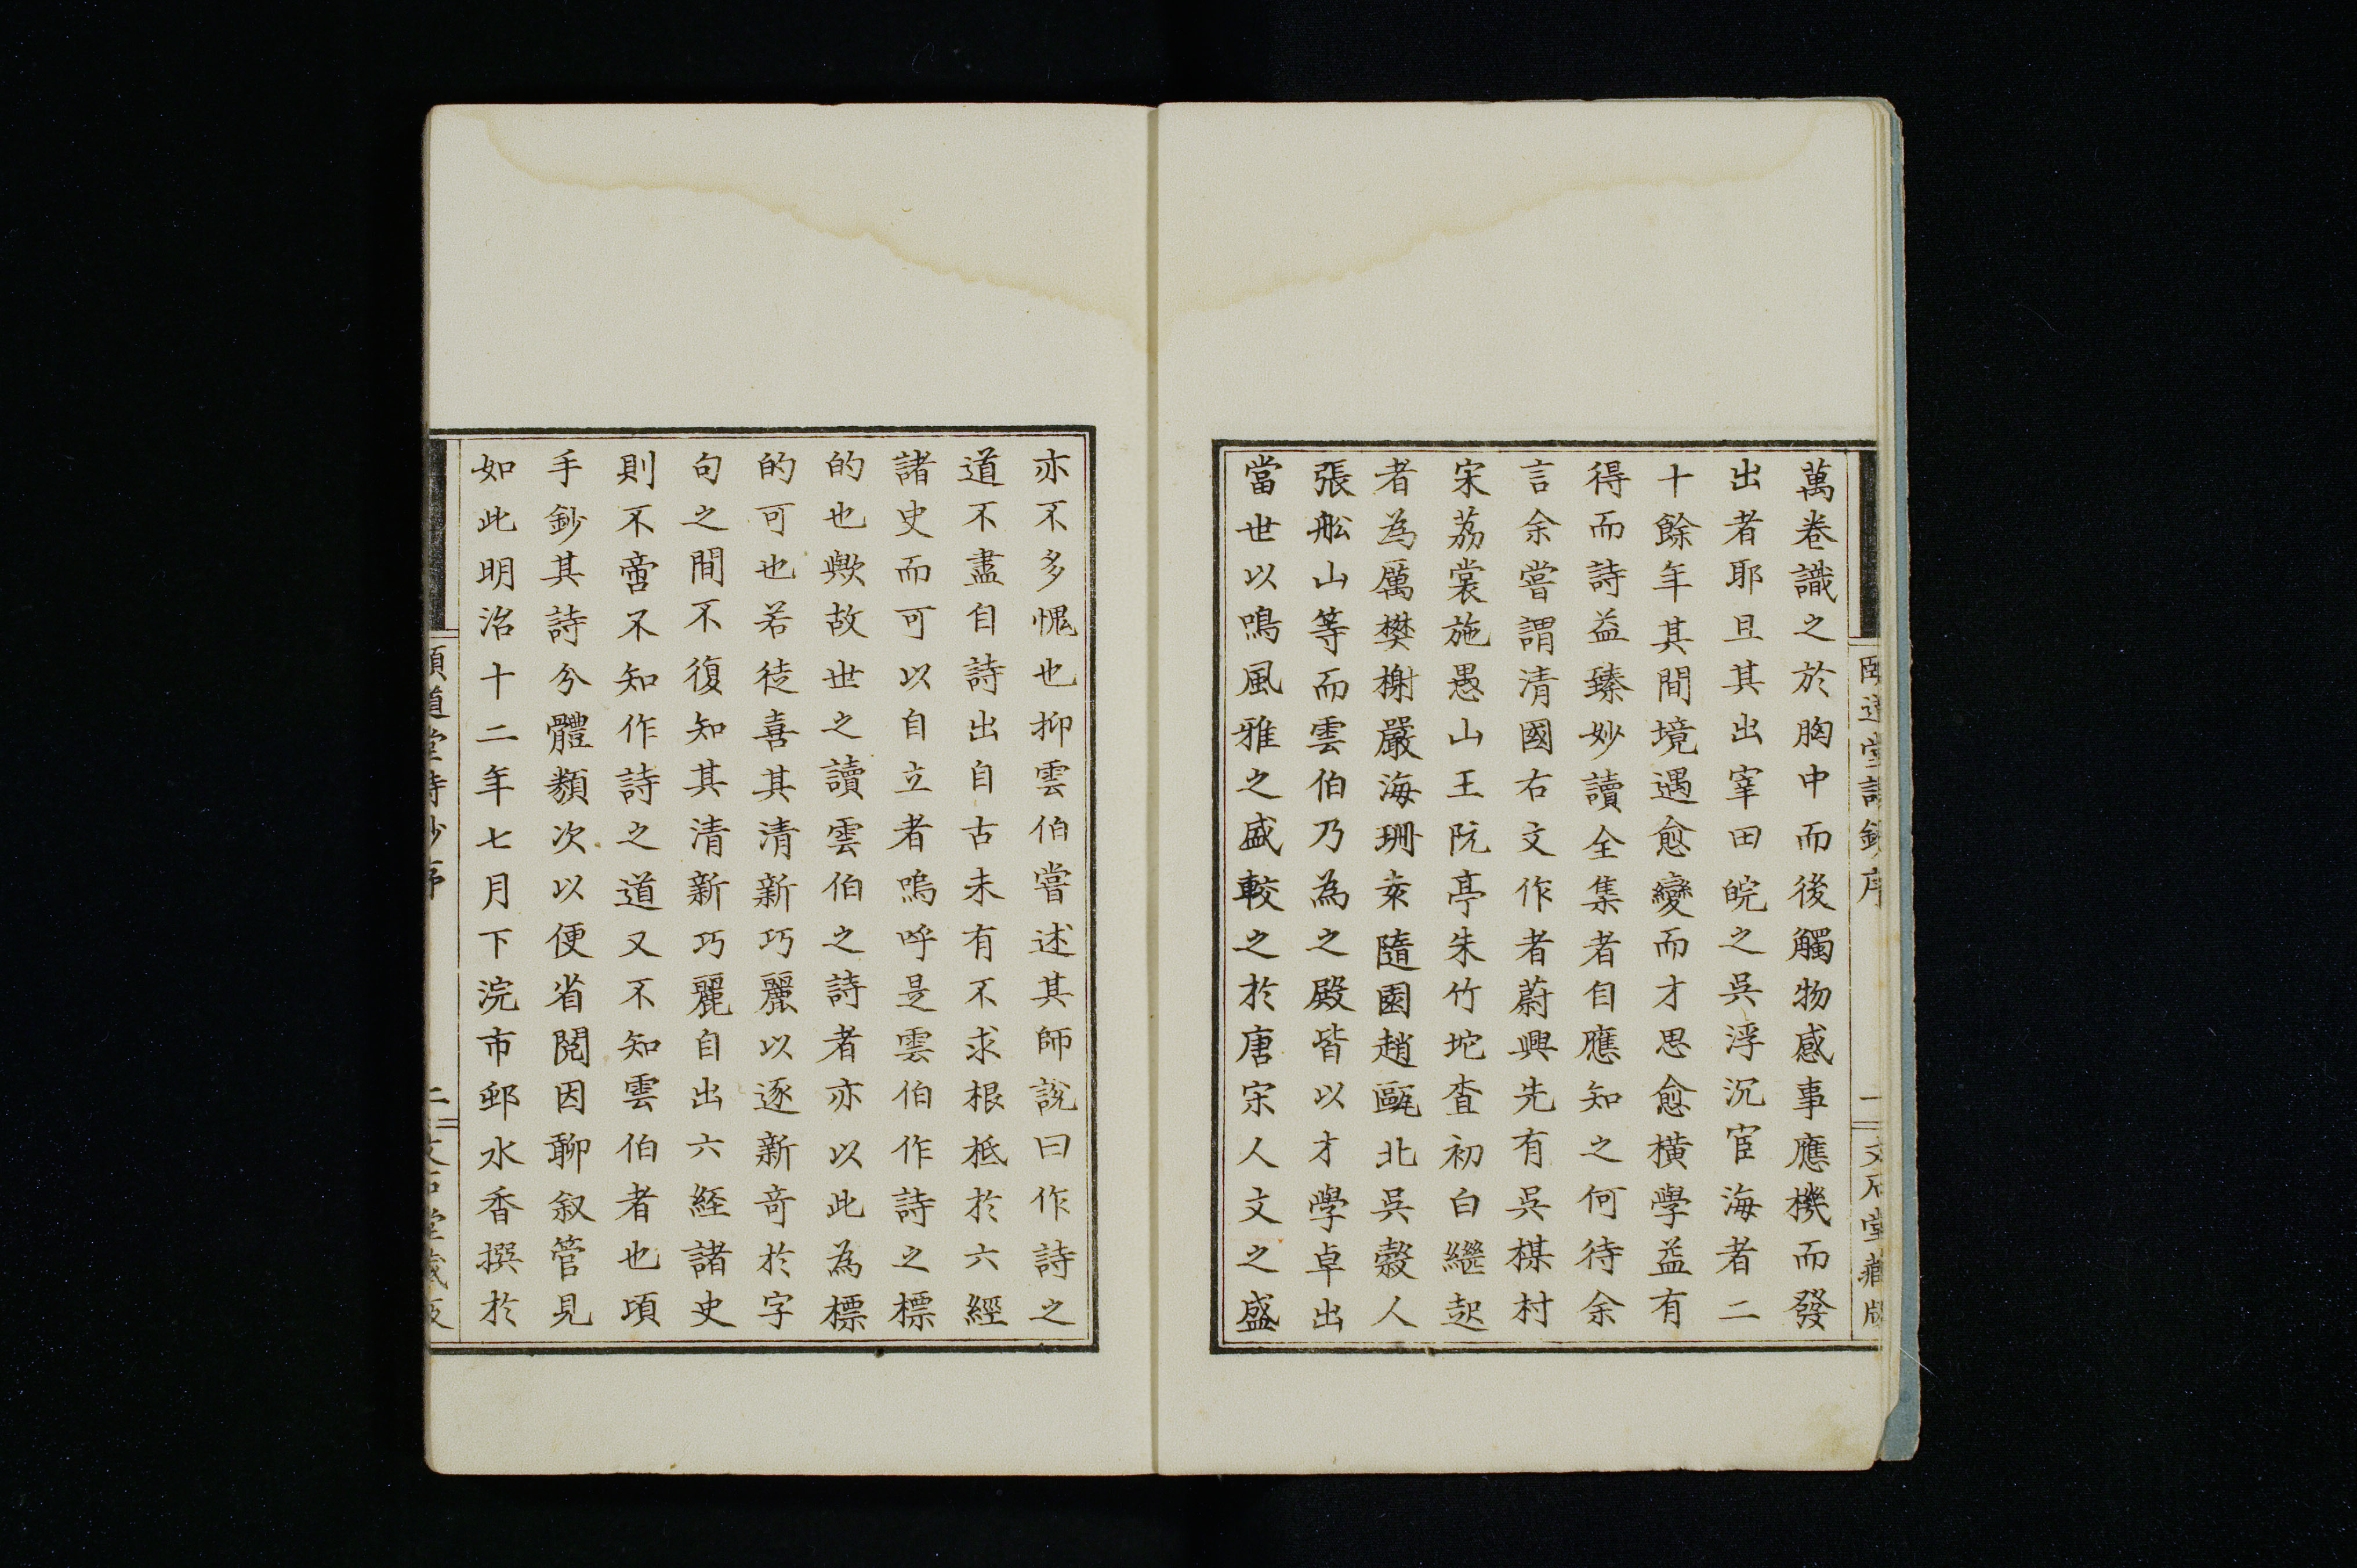 萬卷識之於胸中而後觸物感事應機而發
出者耶且其出宰田皖之吳浮沉宦海者二
十餘年其間境遇愈變而才思愈橫學益有
得而詩益臻妙讀全集者自應知之何待余
言余嘗謂清國右文作者蔚興先有吳楳村
宋荔裳施愚山王阮亭朱竹坨查初白繼起
者為厲樊榭嚴海珊袁隨園趙甌北吳穀人
張船山等而雲伯乃為之殿皆以才學卓出
當世以鳴風雅之盛較之於唐宋人文之盛
亦不多愧也抑雲伯嘗述其師說曰作詩之
道不盡自詩出自古未有不求根柢於六經
諸史而可以自立者嗚呼是雲伯作詩之標
的也歟故世之讀雲伯之詩者亦以此為標
的可也若徒喜其清新巧麗以逐新奇於字
句之間不復知其清新巧麗自出六経諸史
則不啻不知作詩之道又不知雲伯者也頃
手鈔其詩分體類次以便省閱因聊叙管見
如此明治十二年七月下浣市邨水香撰於